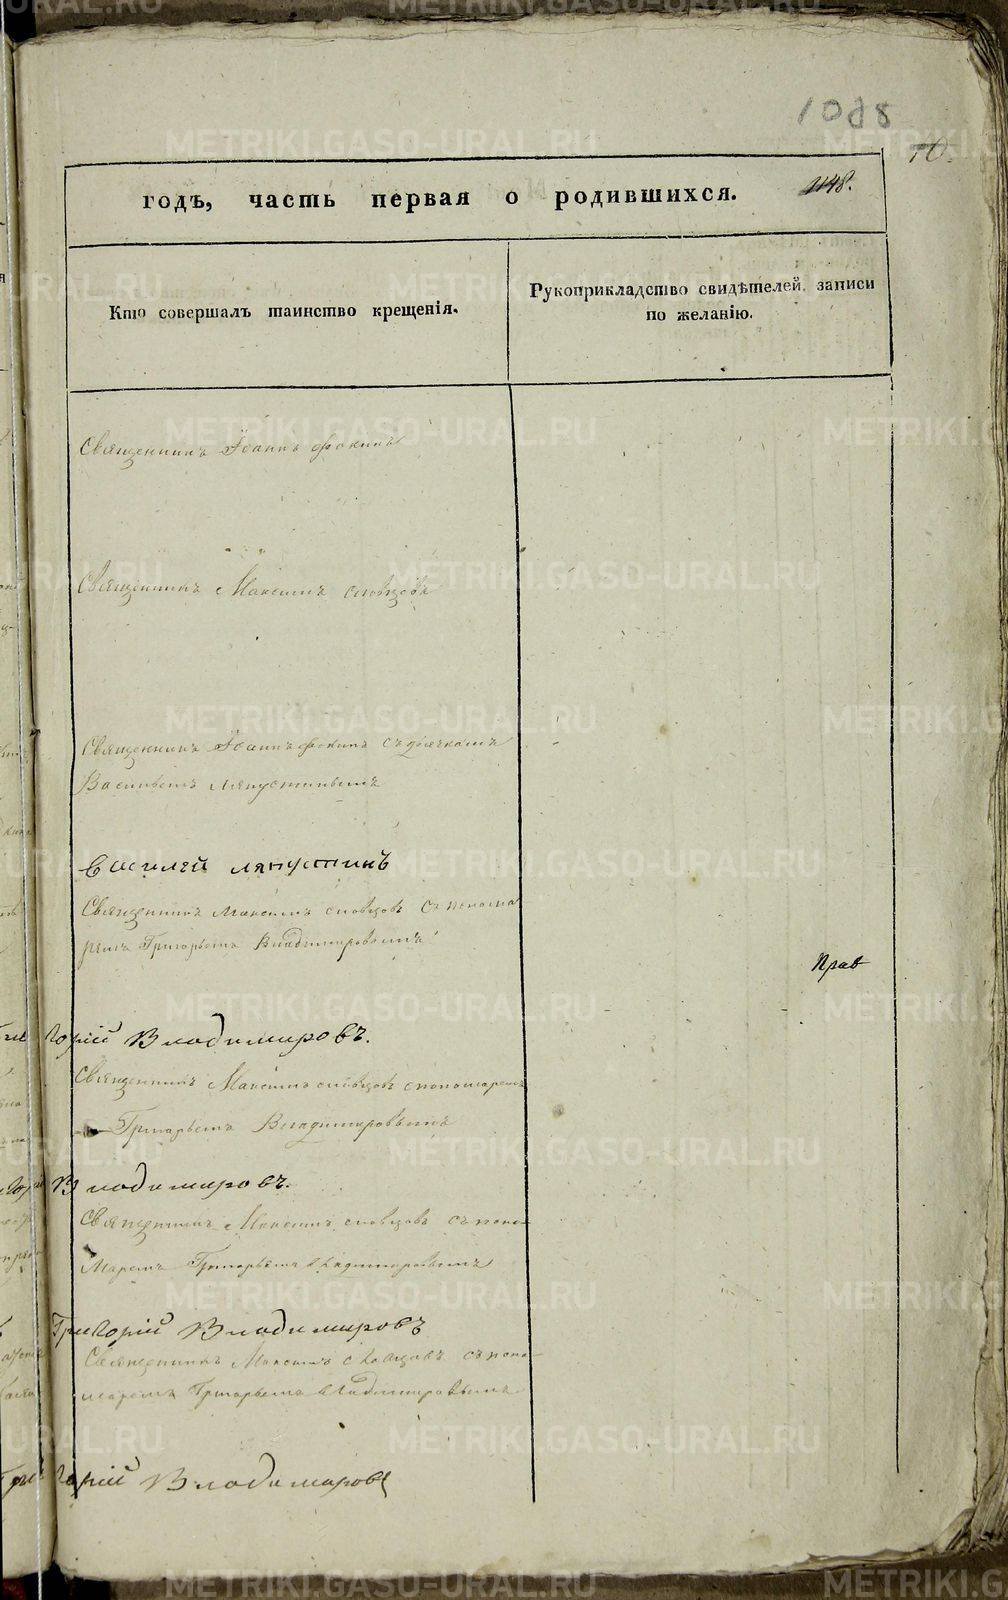 1088
70.
годъ, часть первая о родившихся.
1148.
Кто совершалъ таинство крещенія.
Рукоприкладство свидѣтелей записи
по желанію.
Священникъ Іоаннъ Фокинъ
Священникъ Максимъ Словцовъ
Священникъ Іоаннъ Фокинъ съ дьячкомъ
Васильемъ Ляпустинымъ
Василей Ляпустинъ
Священникъ Максимъ Словцовъ съ понома
ремъ Григорьемъ Владимировымъ
Прав
Григорій Владимировъ.
Священникъ Максимъ Словцовъ с пономаремъ
Григорьемъ Владимировымъ
Владимировъ.
Священникъ Максимъ Словцовъ съ поно-
маремъ Григорьемъ Владимировымъ
Григорій Владимировъ
Священникъ Максимъ Словцовъ съ поно-
маремъ Григорьемъ Владимировымъ
Григорій Владимировъ
METRIKI.GASO-URAL.RU